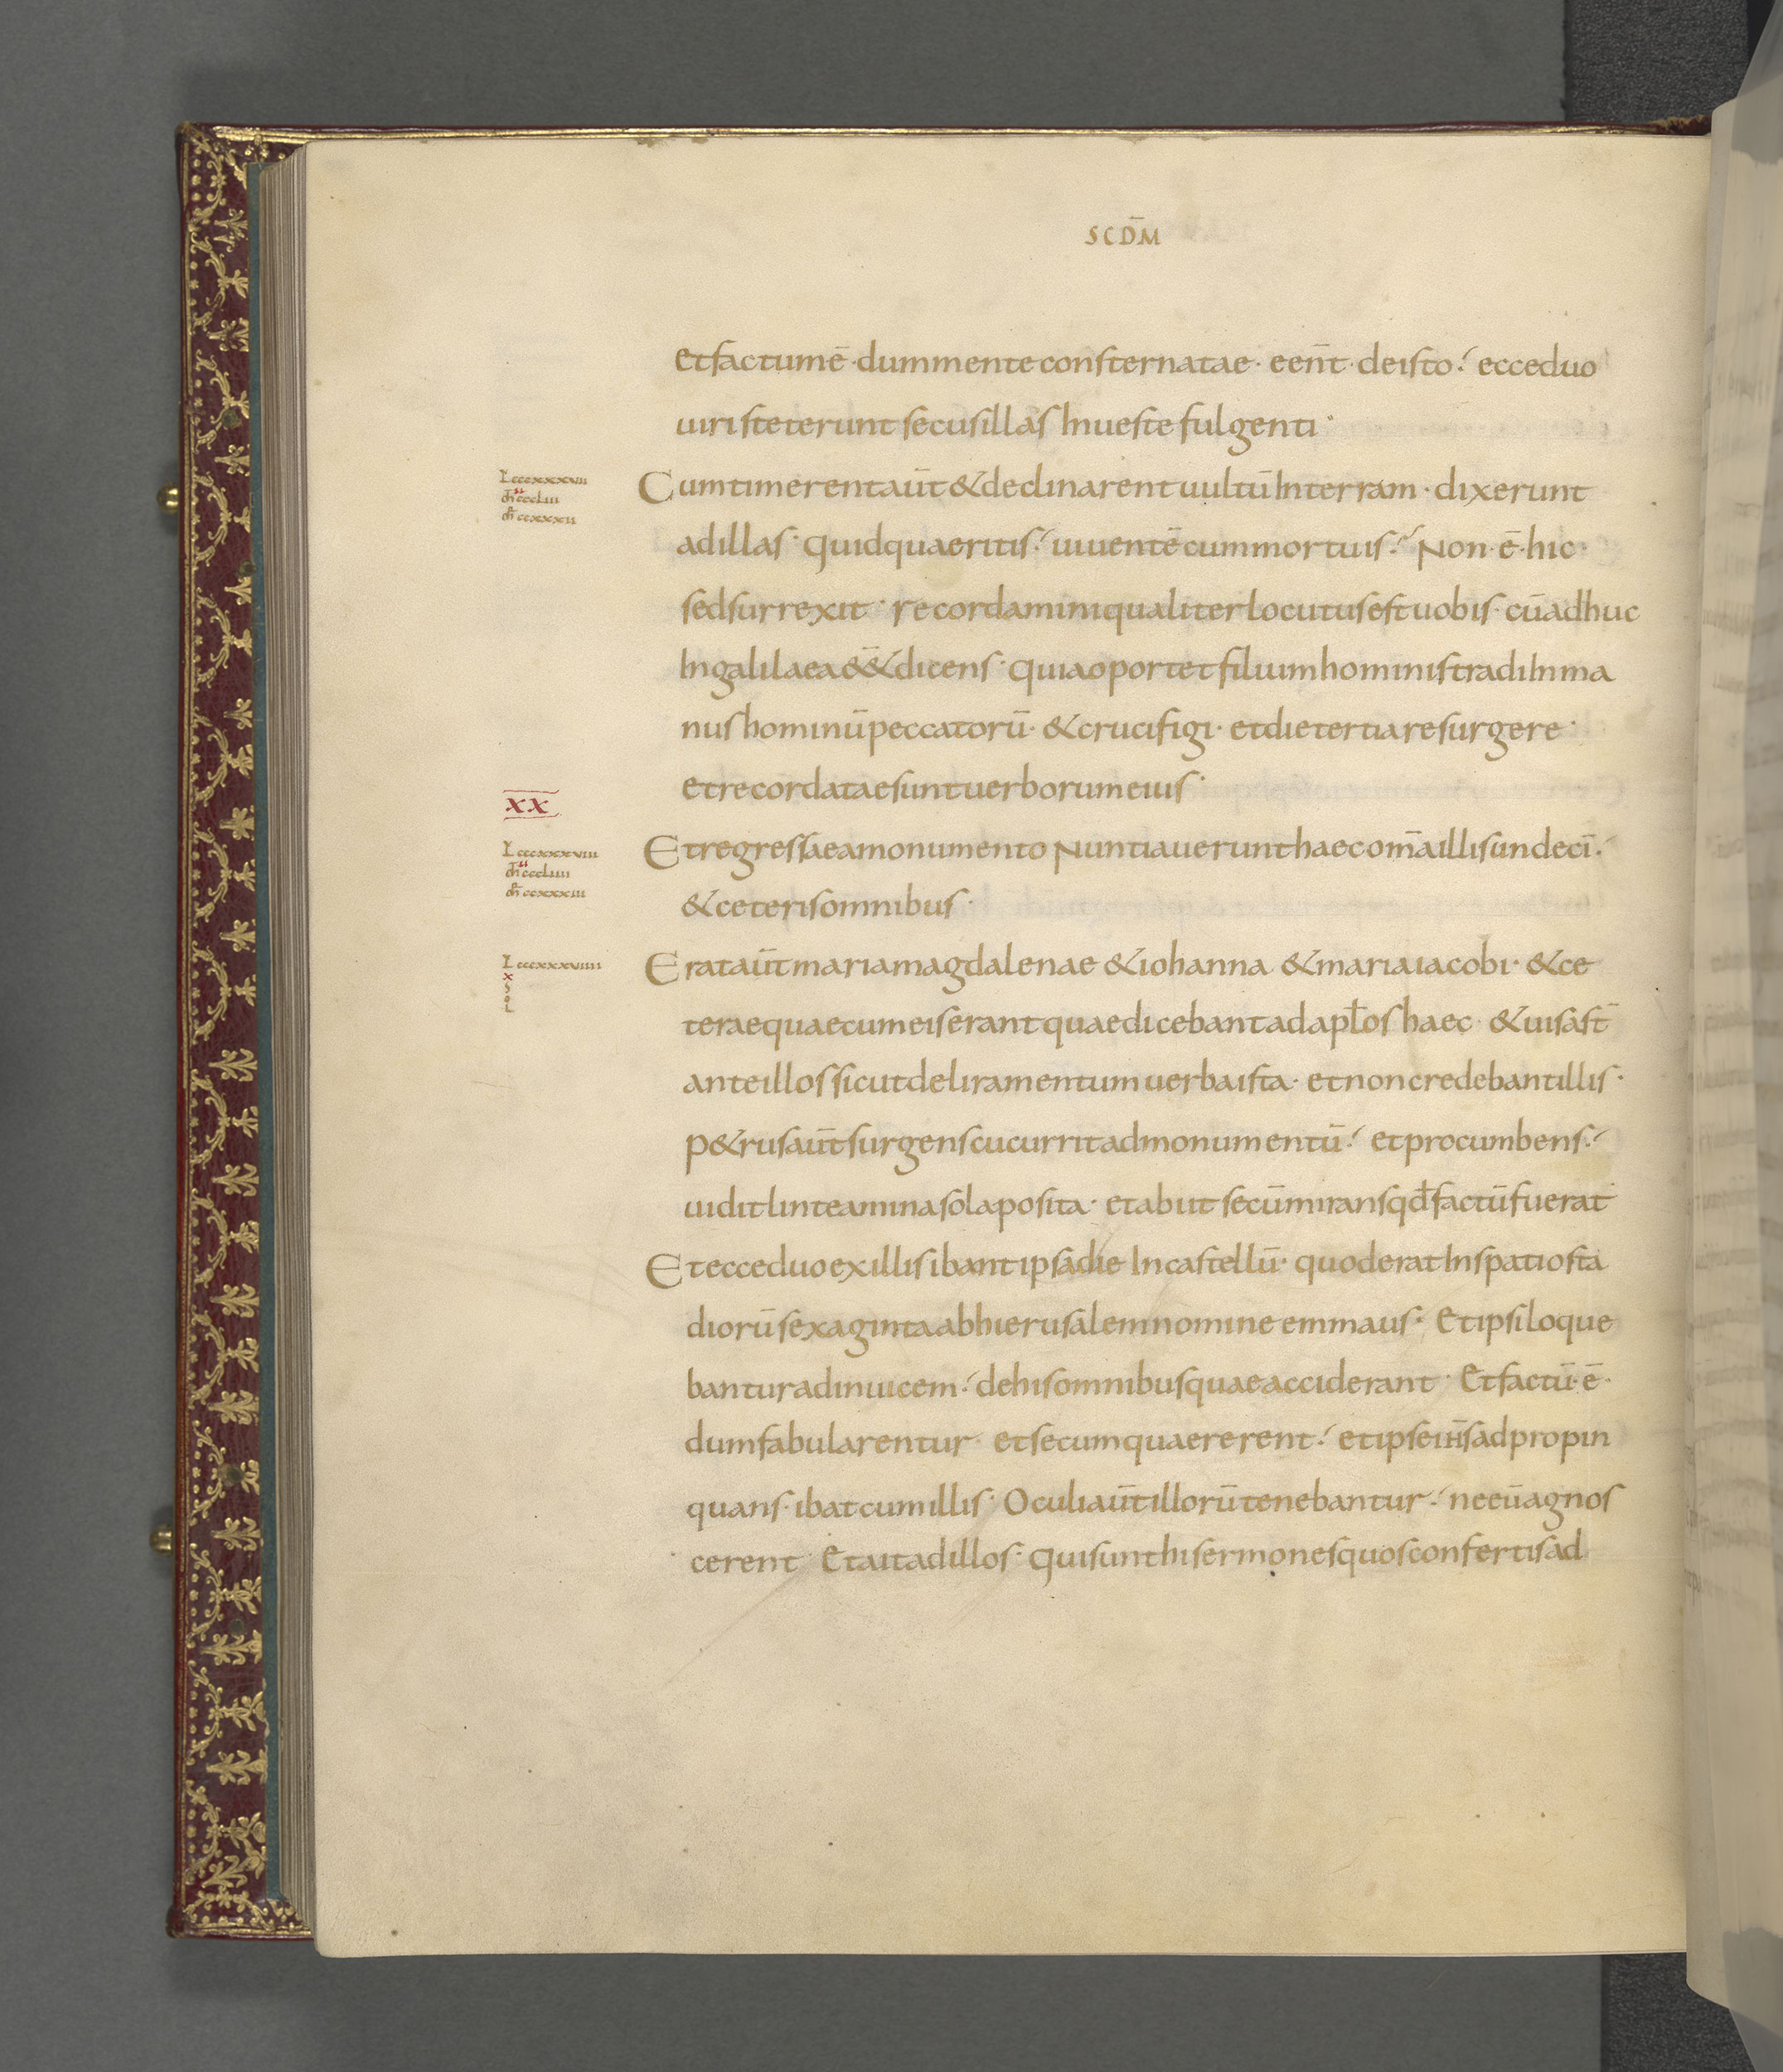 SCD̄M
et factum ē · dum mente consternatae · een̄t · de isto ecce duo
uiri steterunt secus illas In ueste fulgenti ·
L cccxxxvii
Cum timerent aūt & declinarent uultū In terram · dixerunt
ad illas · quid quaeritis uiuentē cum mortuis Non · ē · hic
sed surrexit · recordamini qualiter locutus est uobis · cū adhuc
In galilaea e&̄ & dicens · quia oportet filium hominis tradi In ma
nus hominū peccatorū · & crucifigi · et die tertia resurgere ·
et recordatae sunt uerborum eius ·
XX
L cccxxxviii
Et regressae a monumento Nuntiauerunt haec om̄a illis undeci̅
& ceteris omnibus ·
L cccxxxviiii
x
s
o
L
Erat aūt maria magdalenae & iohanna & maria iacobi · & ce
terae quae cum eis erant quae dicebant ad apl̄os haec · & uisa st̄
ante illos sicut deliramentum uerba ista · et non credebant illis ·
p&rus aūt surgens cucurrit ad monumentū et procumbens
uidit linteamina sola posita · et abiit secū mirans qđ factū fuerat
Et ecce duo ex illis ibant ipsa die In castellū · quod erat In spatio sta
diorū sexaginta ab hierusalem nomine emmaus · Et ipsi loque
bantur ad inuicem de his omnibus quae acciderant · Et factū · ē ·
dum fabularentur · et secum quaererent et ipse ih̄s adpropin
quans · ibat cum illis · Oculi aūt illorū tenebantur ne eū agnos
cerent · Et ait ad illos · qui sunt hi sermones quos confertis ad